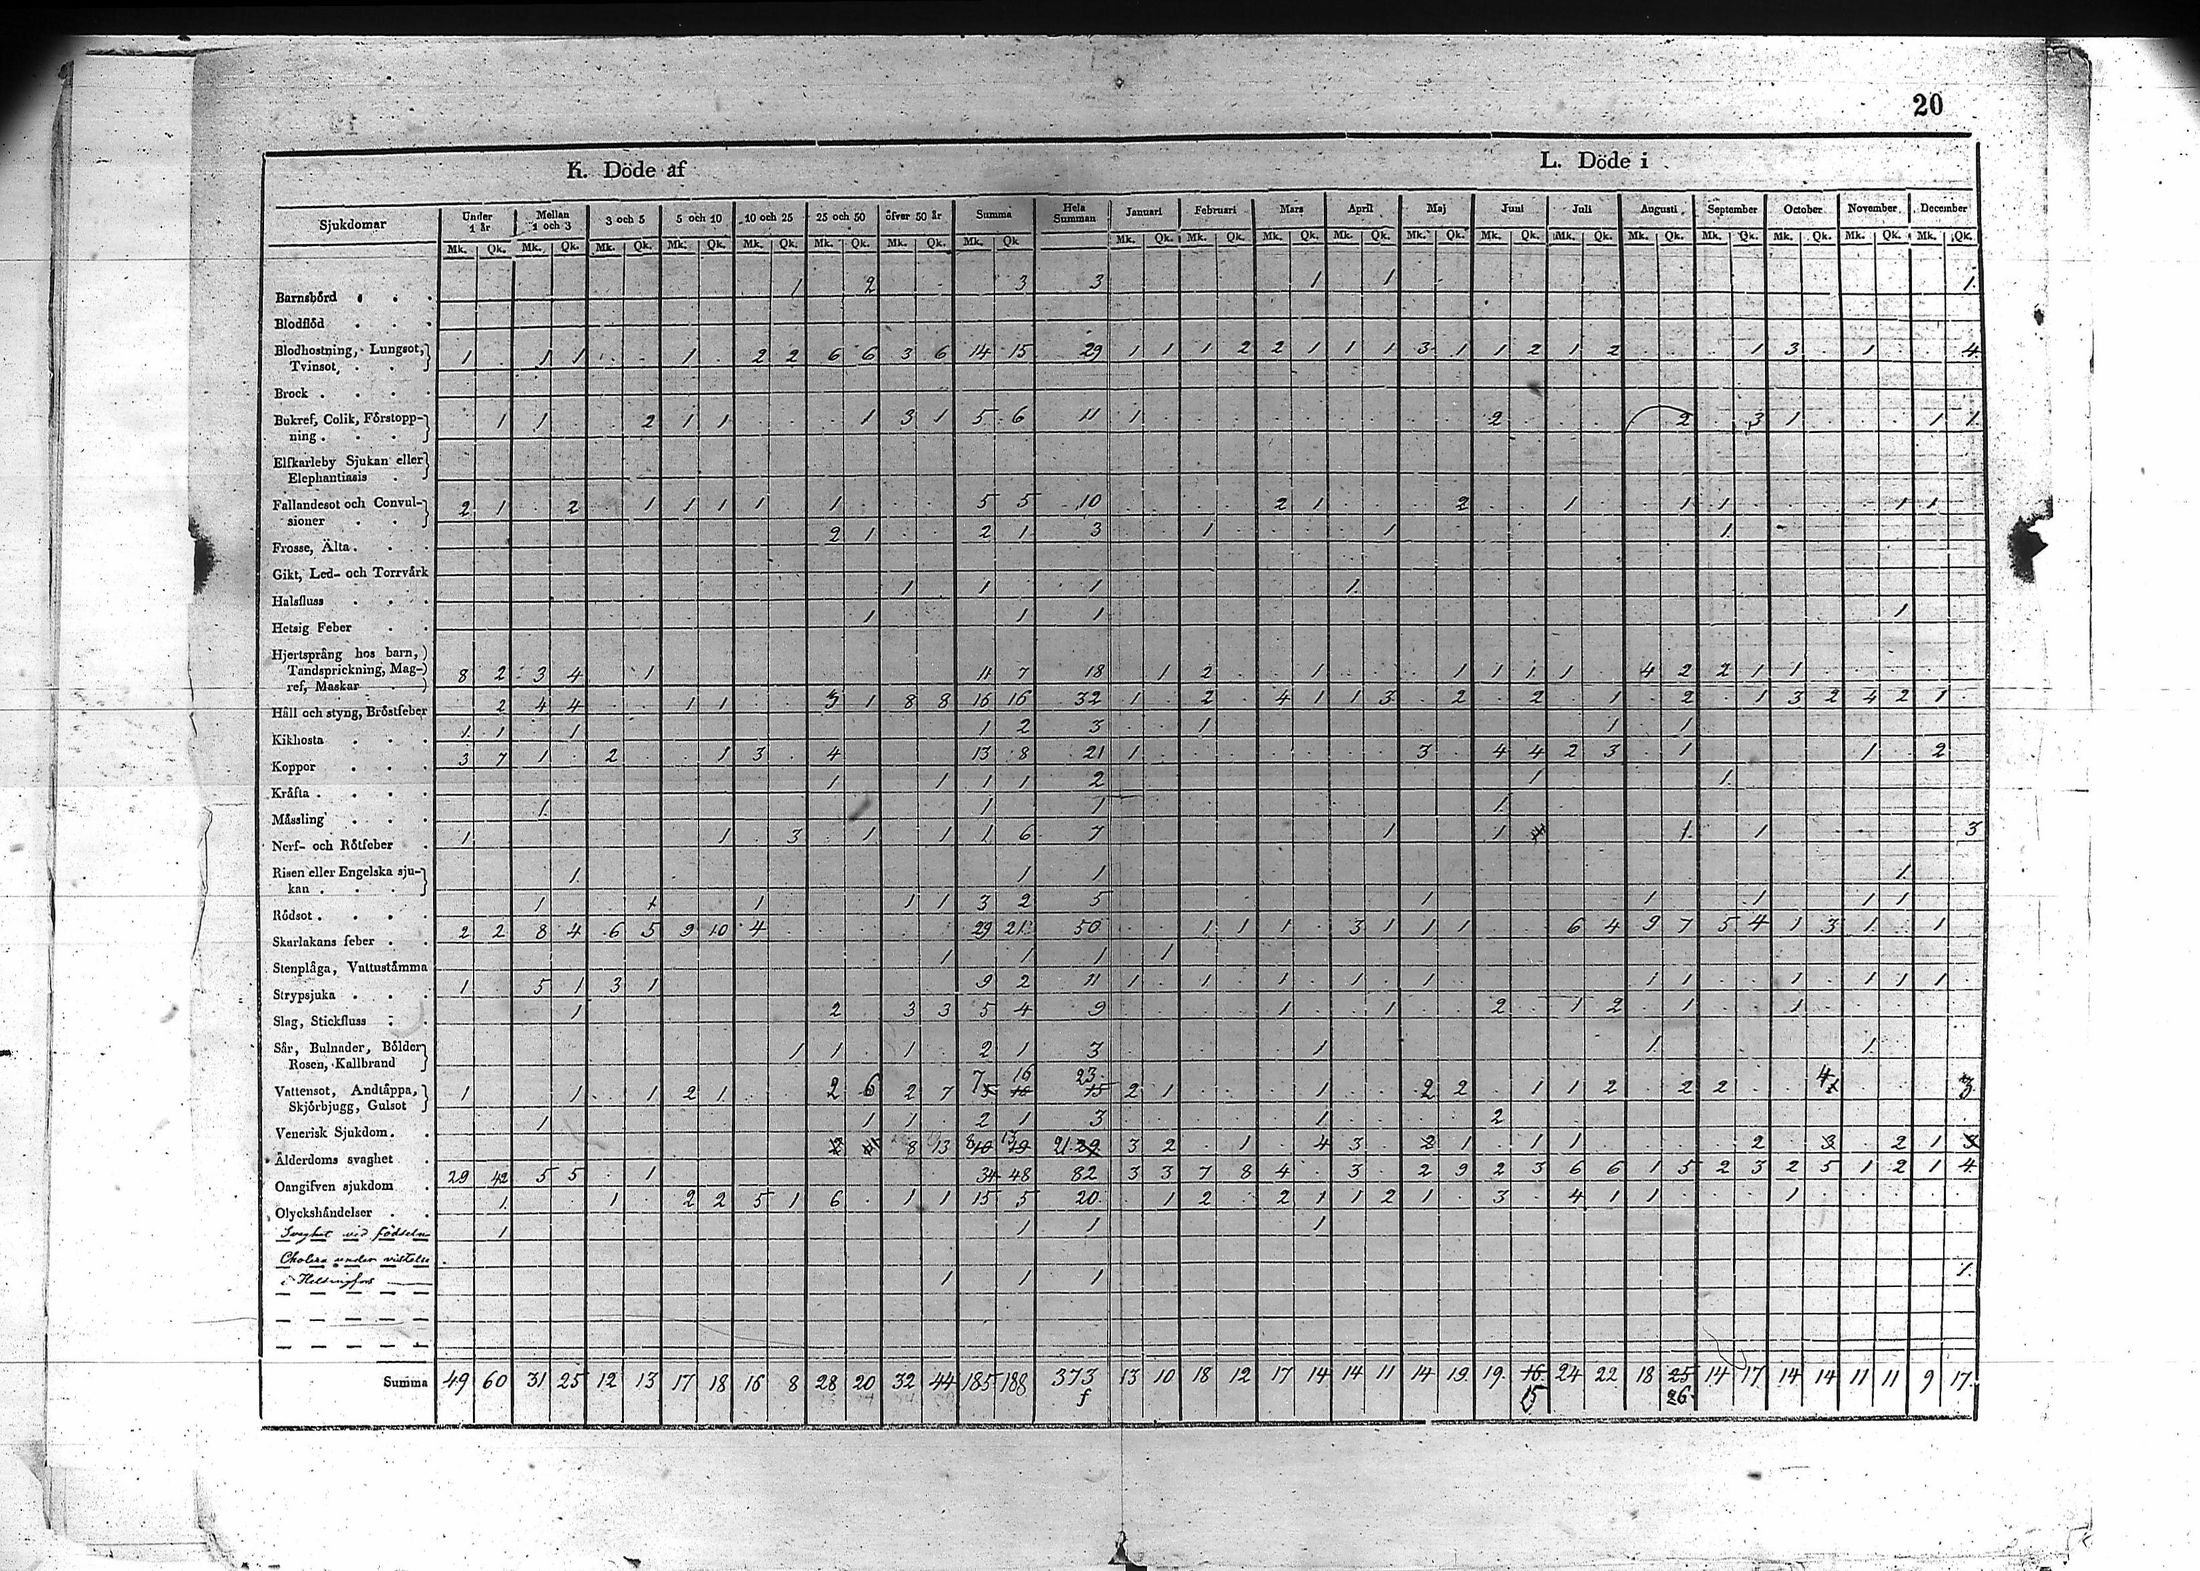 20
K. Döde af
L. Döde i
Sjukdomar Under 1 år Mellan 1 och 3 3 och 5 5 och 10 10 och 25 25 och 50 öfver 50 år Summa Hela Summan Januari Februari Mars April Maj Juni Juli Augusti September October November December
Mk. Qk. Mk. Qk. Mk. Qk. Mk. Qk. Mk. Qk. Mk. Qk. Mk. Qk. Mk. Qk Mk. Qk. Mk. Qk. Mk. Qk. Mk. Qk. Mk. Qk. Mk. Qk. Mk. Qk. Mk. Qk. Mk. Qk. Mk. Qk. Mk. Qk. Mk. Qk.
Barnsbörd 1 2 3 3 1 1 1
Blodflöd
Blodhostning, Lungsot, Tvinsot 1 1 1 1 2 2 6 6 3 6 14 15 29 1 1 1 2 2 1 1 1 3 1 1 2 1 2 1 3 1 4
Brock
Bukref, Colik, Förstoppning 1 1 2 1 1 1 3 1 5 6 11 1 2 2 3 1 1 1
Elfkarleby Sjukan eller Elephantiasis
Fallandesot och Convulsioner 2 1 2 1 1 1 1 1 5 5 10 2 1 2 1 1 1 1 1
Frosse, Älta 2 1 2 1 3 1 1 1
Gikt, Led- och Torrvärk
Halsfluss 1 1 1 1
Hetsig Feber 1 1 1 1
Hjertsprång hos barn, Tandsprickning, Magref, Maskar 8 2 3 4 1 11 7 18 1 2 1 1 1 1 1 4 2 2 1 1
Håll och styng, Bröstfeber 2 4 4 1 1 3 1 8 8 16 16 32 1 2 4 1 1 3 2 2 1 2 1 3 2 4 2 1
Kikhosta 1 1 1 1 2 3 1 1 1
Koppor 3 7 1 2 1 3 4 13 8 21 1 3 4 4 2 3 1 1 2
Kräfta 1 1 1 1 2 1 1
Mässling 1 1 1 1
Nerf- och Rötfeber 1 1 3 1 1 1 6 7 1 1 1 1 3
Risen eller Engelska sjukan 1 1 1 1
Rödsot 1 1 1 1 1 3 2 5 1 1 1 1 1
Skarlakans feber 2 2 8 4 6 5 9 10 4 29 21 50 1 1 1 3 1 1 1 6 4 9 7 5 4 1 3 1 1
Stenplåga, Vattustämma 1 1 1 1
Strypsjuka 1 5 1 3 1 9 2 11 1 1 1 1 1 1 1 1 1 1 1
Slag, Stickfluss 1 2 3 3 5 4 9 1 1 2 1 2 1 1
Sår, Bulnader, Bölder Rosen, Kallbrand 1 1 1 2 1 3 1 1 1
Vattensot, Andtäppa, Skjörbjugg, Gulsot 1 1 1 2 1 2 6 2 7 7 16 23 15 2 1 1 2 2 1 1 2 2 2 4 3
Venerisk Sjukdom 1 1 1 2 1 3 1 2
Ålderdoms svaghet 2 8 13 8 13 21 3 2 1 4 3 2 1 1 1 2 3 2 1
Oangifven sjukdom 29 42 5 5 1 34 48 82 3 3 7 8 4 3 2 9 2 3 6 6 1 5 2 3 2 5 1 2 1 4
Olyckshändelser 1 1 2 2 5 1 6 1 1 15 5 20 1 2 2 1 1 2 1 3 4 1 1 1
Svaghet vid födseln 1 1 1 1
Cholera under vistelse
i Helsingfors 1 1 1 1
Summa 49 60 31 25 12 13 17 18 16 8 28 20 32 44 185 188 373 13 10 18 12 17 14 14 11 14 19 19 16 24 22 18 25 14 17 14 14 11 11 9 17
15 26